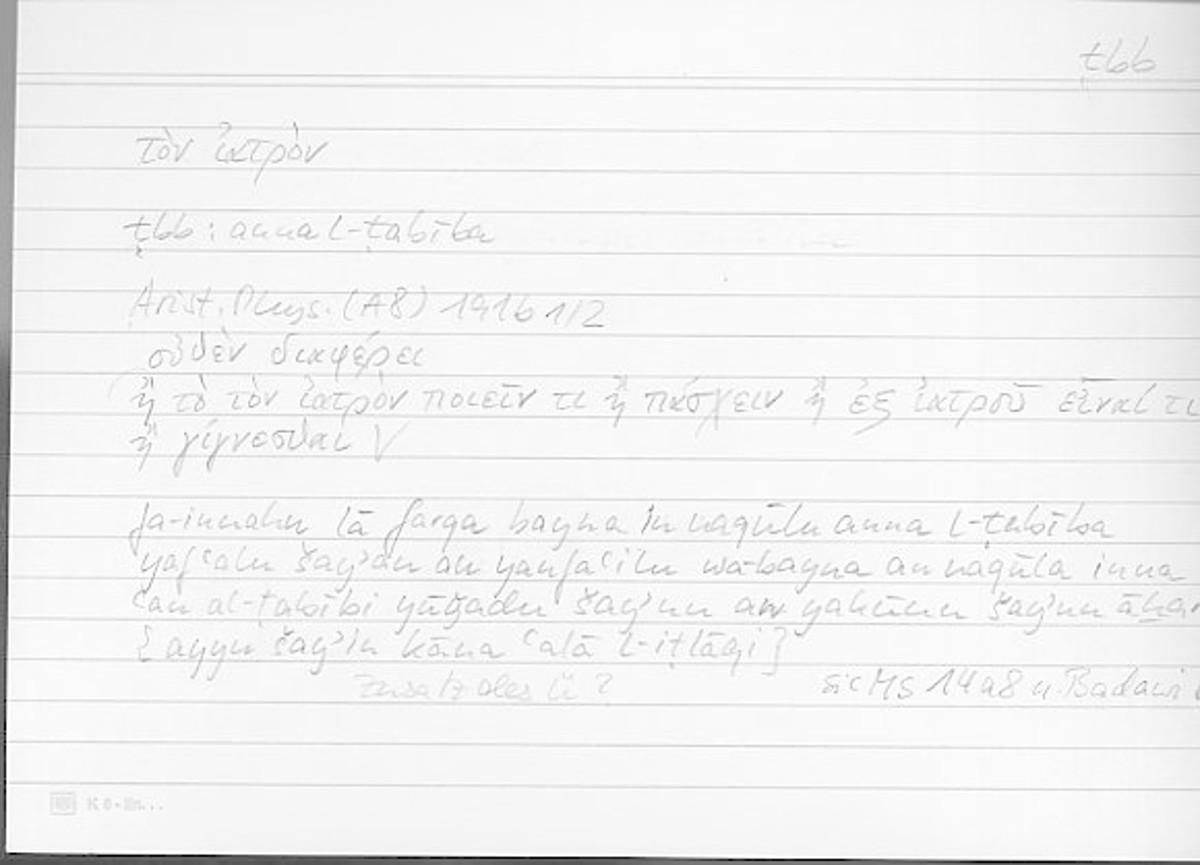 ṭbb
τὸν ἰατρὸν
ṭbb: anna l-ṭabība
Arist. Phys. (A8) 191b 1/2
οὐθὲν διαφέρει
ἢ τὸ τὸν ἰατρὸν ποιεῖν τι ἢ πάσχειν ἢ ἐξ ἰατροῦ εἶναί τι
ἢ γίγνεσθαι
fa-innahu lā farqa bayna in naqūlu anna l-ṭabība
yafʿalu šayʾan aw yanfaʿilu wa-bayna an naqūla inna
ʿan al-ṭabībi yūǧadu šayʾun aw yakūnu šayʾun
[ayyu šayʾin kāna ʿalā l-iṭlāqi]
Zusatz des Ü?
sic MS 14a8 u. Badawi